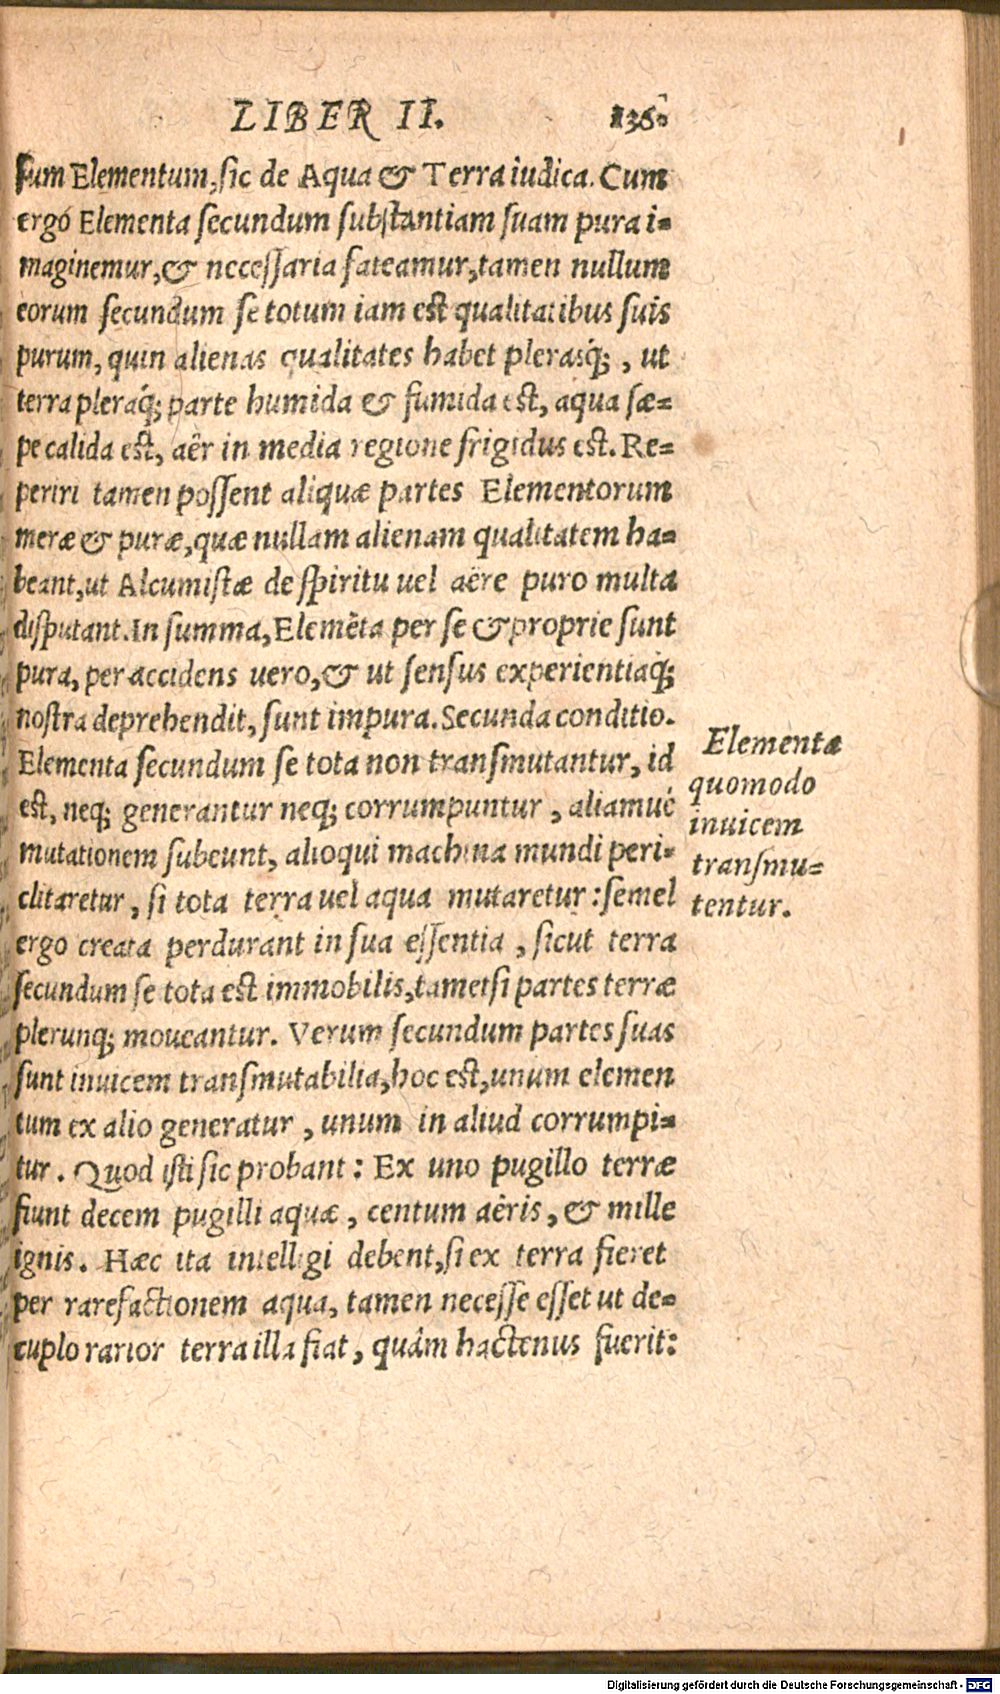 LIBER II. 136.
sum Elementum, sic de Aqua & Terra iudica. Cum
ergò Elementa secundum substantiam suam pura i=
maginemur, & necessaria fateamur, tamen nullum
eorum secundum se totum iam est qualitatibus suis
purum, quin alienas qualitates habet plerasq́;, ut
terra pleraq́; parte humida & fumida est, aqua sæ=
pe calida est, aër in media regione frigidus est. Re=
periri tamen possent aliquæ partes Elementorum
meræ & puræ, quæ nullam alienam qualitatem ha=
beant, ut Alcumistæ de spiritu uel aëre puro multa
disputant. In summa, Elemẽta per se & proprie sunt
pura, per accidens uero, & ut sensus experientiaq́;
nostra deprehendit, sunt impura. Secunda conditio.
Elementa secundum se tota non transmutantur, id
est, neq; generantur neq; corrumpuntur, aliamué
mutationem subeunt, alioqui machina mundi peri=
clitaretur, si tota terra uel aqua mutaretur: semel
ergo creata perdurant in sua essentia, sicut terra
secundum se tota est immobilis, tametsi partes terræ
plerunq; moueantur. Verum secundum partes suas
sunt inuicem transmutabilia, hoc est, unum elemen
tum ex alio generatur, unum in aliud corrumpi=
tur. Quod isti sic probant: Ex uno pugillo terræ
fiunt decem pugilli aquæ, centum aëris, & mille
ignis. Hæc ita intelligi debent, si ex terra fieret
per rarefactionem aqua, tamen necesse esset ut de=
cuplo rarior terra illa fiat, quàm hactenus fuerit:
Elementa
quomodo
inuicem
transmu=
tentur.
Digitalisierung gefördert durch die Deutsche Forschungsgemeinschaft - DFG